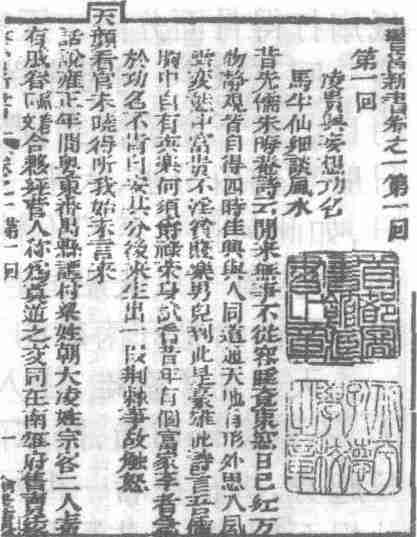 警富新書卷之一第一回
第一回
凌貴興妄想功名
馬半仙細談風水
昔先儒朱晦菴詩云閒來無事不從容睡覺東窓日已紅万
物静观皆自得四時佳興與人同道通天地有形外思入風
雲変態中富貴不淫貧賤樂男兒到此是豪雄此詩言吾儒
胸中自有真樂何須爵禄榮身試看昔年有個富家子者急
於功名不肯自安其分後來生出一段荆棘事故觸怒
天顏看官未曉得所我始末言來
話說雍正年間粤東番禺縣譚村梁姓朝大凌姓宗客二人素
有戚容合夥經營人称為莫逆之交同在南雄府舊
第一回